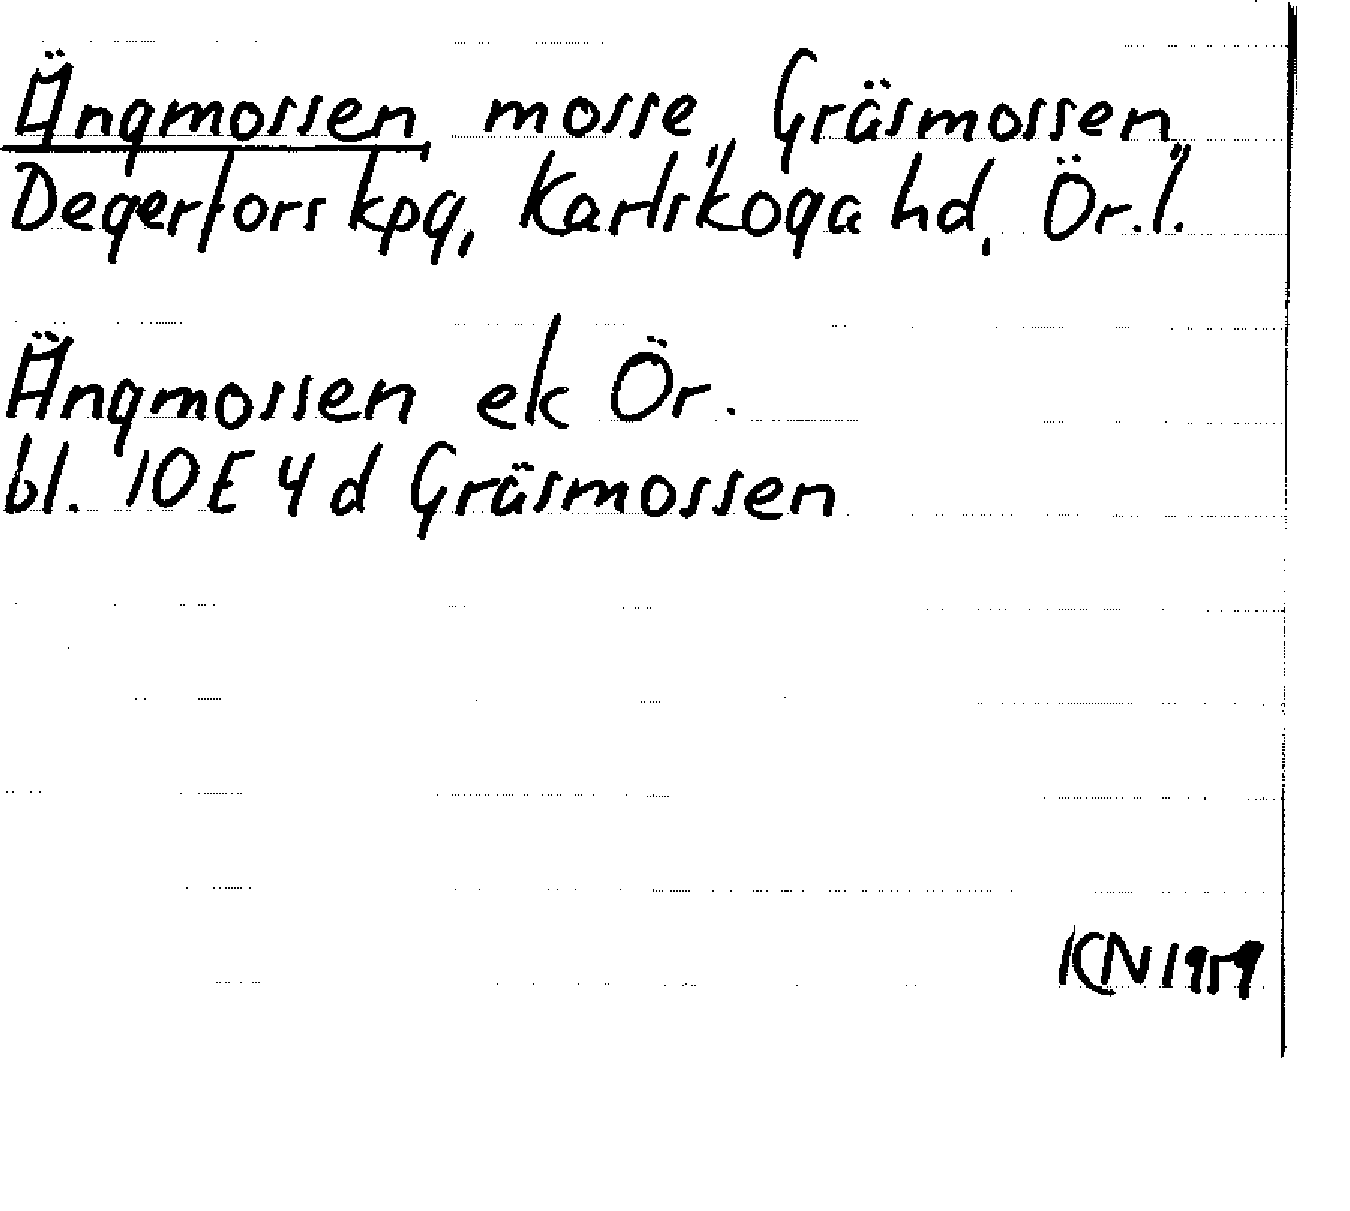 Ängmossen, mosse "Gräsmossen"
Degerfors kpg, Karlskoga hd, Ör.l.
Ängmossen ek Ör.
bl. 10E 4d Gräsmossen
KN 1959